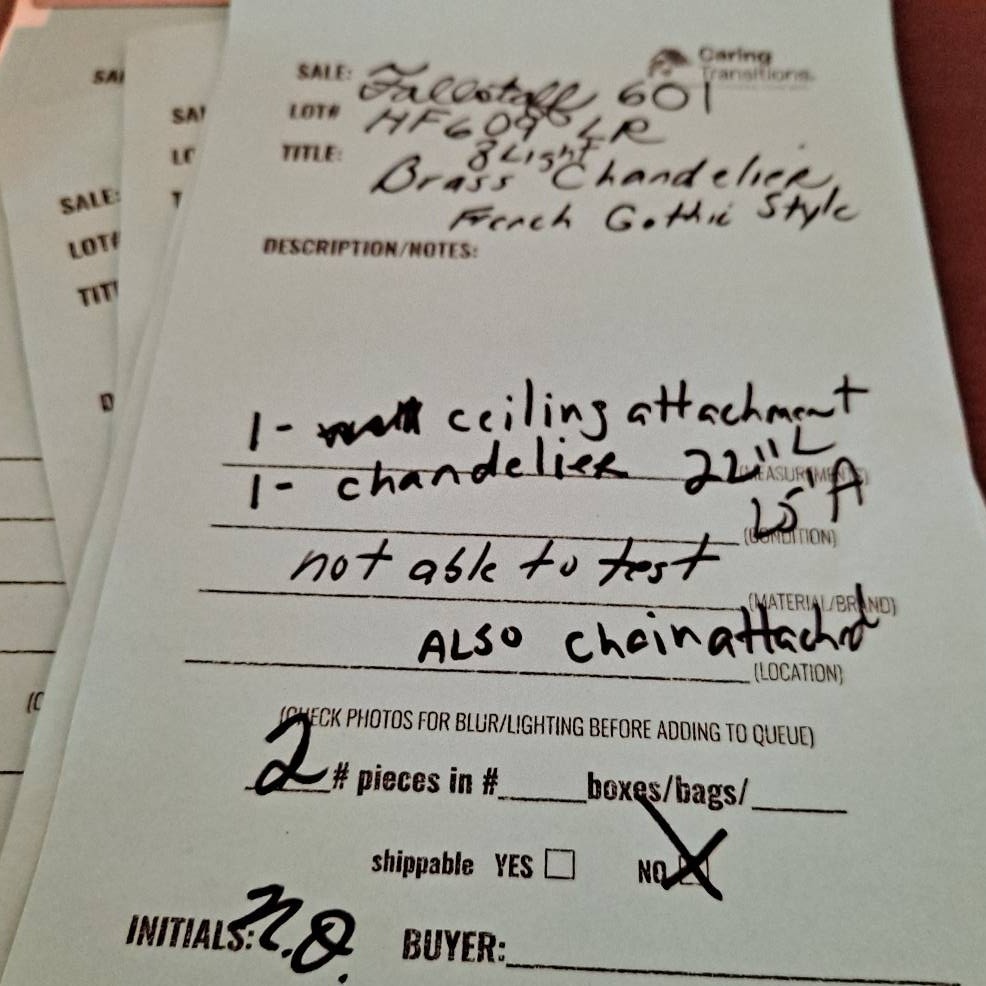 Caring
Transitions.
SALE: Fallstaff 601
LOT# HF609 LR
8 Light
TITLE: Brass Chandelier,
French Gothic Style
DESCRIPTION/NOTES:
1- ceiling attachment
1- chandelier 22" L
(MEASUREMENTS)
15"
(CONDITION)
not able to test
(MATERIAL/BRAND)
ALSO chain attached
(LOCATION)
(CHECK PHOTOS FOR BLUR/LIGHTING BEFORE ADDING TO QUEUE)
2 # pieces in #_____ boxes/bags/_____
shippable YES ☐ NO ☒
INITIALS: N.O. BUYER:
SA
SA
LC
T
SALE:
LOT#
TIT
D
(C